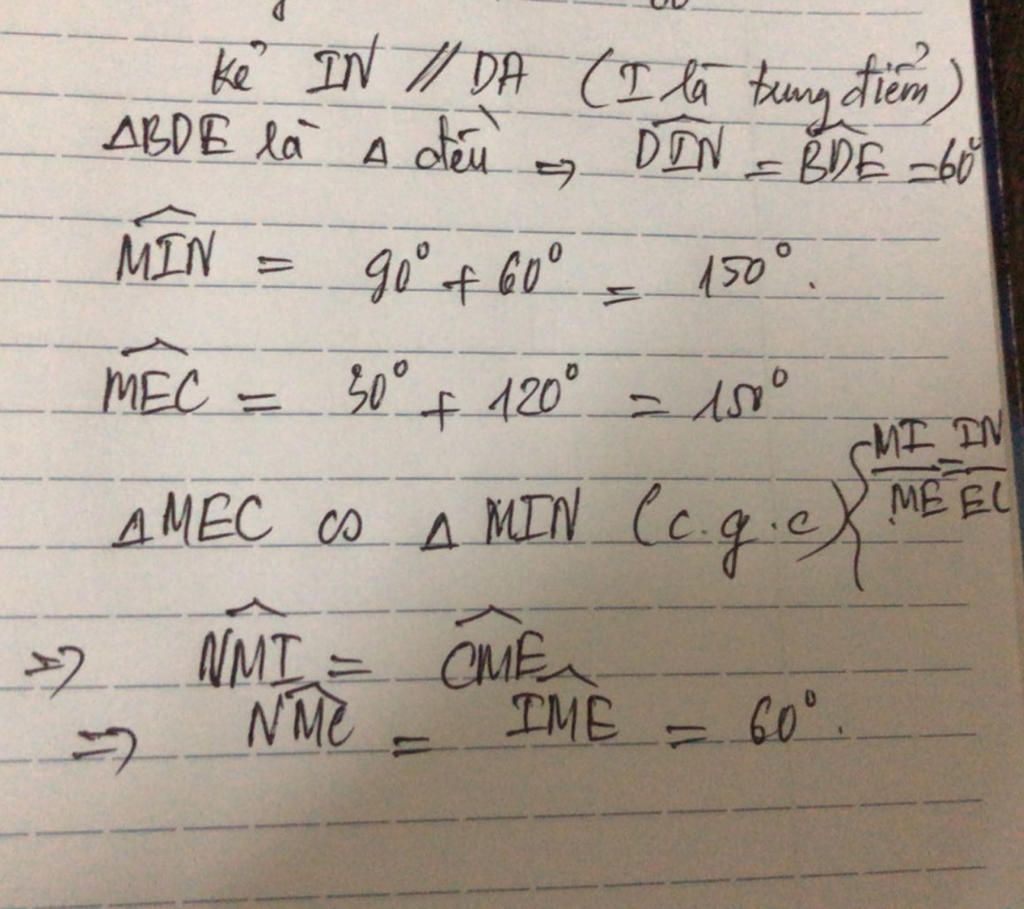 kẻ IN // DA (I là trung điểm)
ΔBDE là Δ đều ⇒ \widehat{DIN} = \widehat{BDE} = 60°
\widehat{MIN} = 90° + 60° = 150°.
\widehat{MEC} = 30° + 120° = 150°
ΔMEC ∽ Δ MIN (c.g.c) { MI/ME = IN/EC
⇒ \widehat{NMI} = \widehat{CME}
⇒ \widehat{NMC} = \widehat{IME} = 60°.